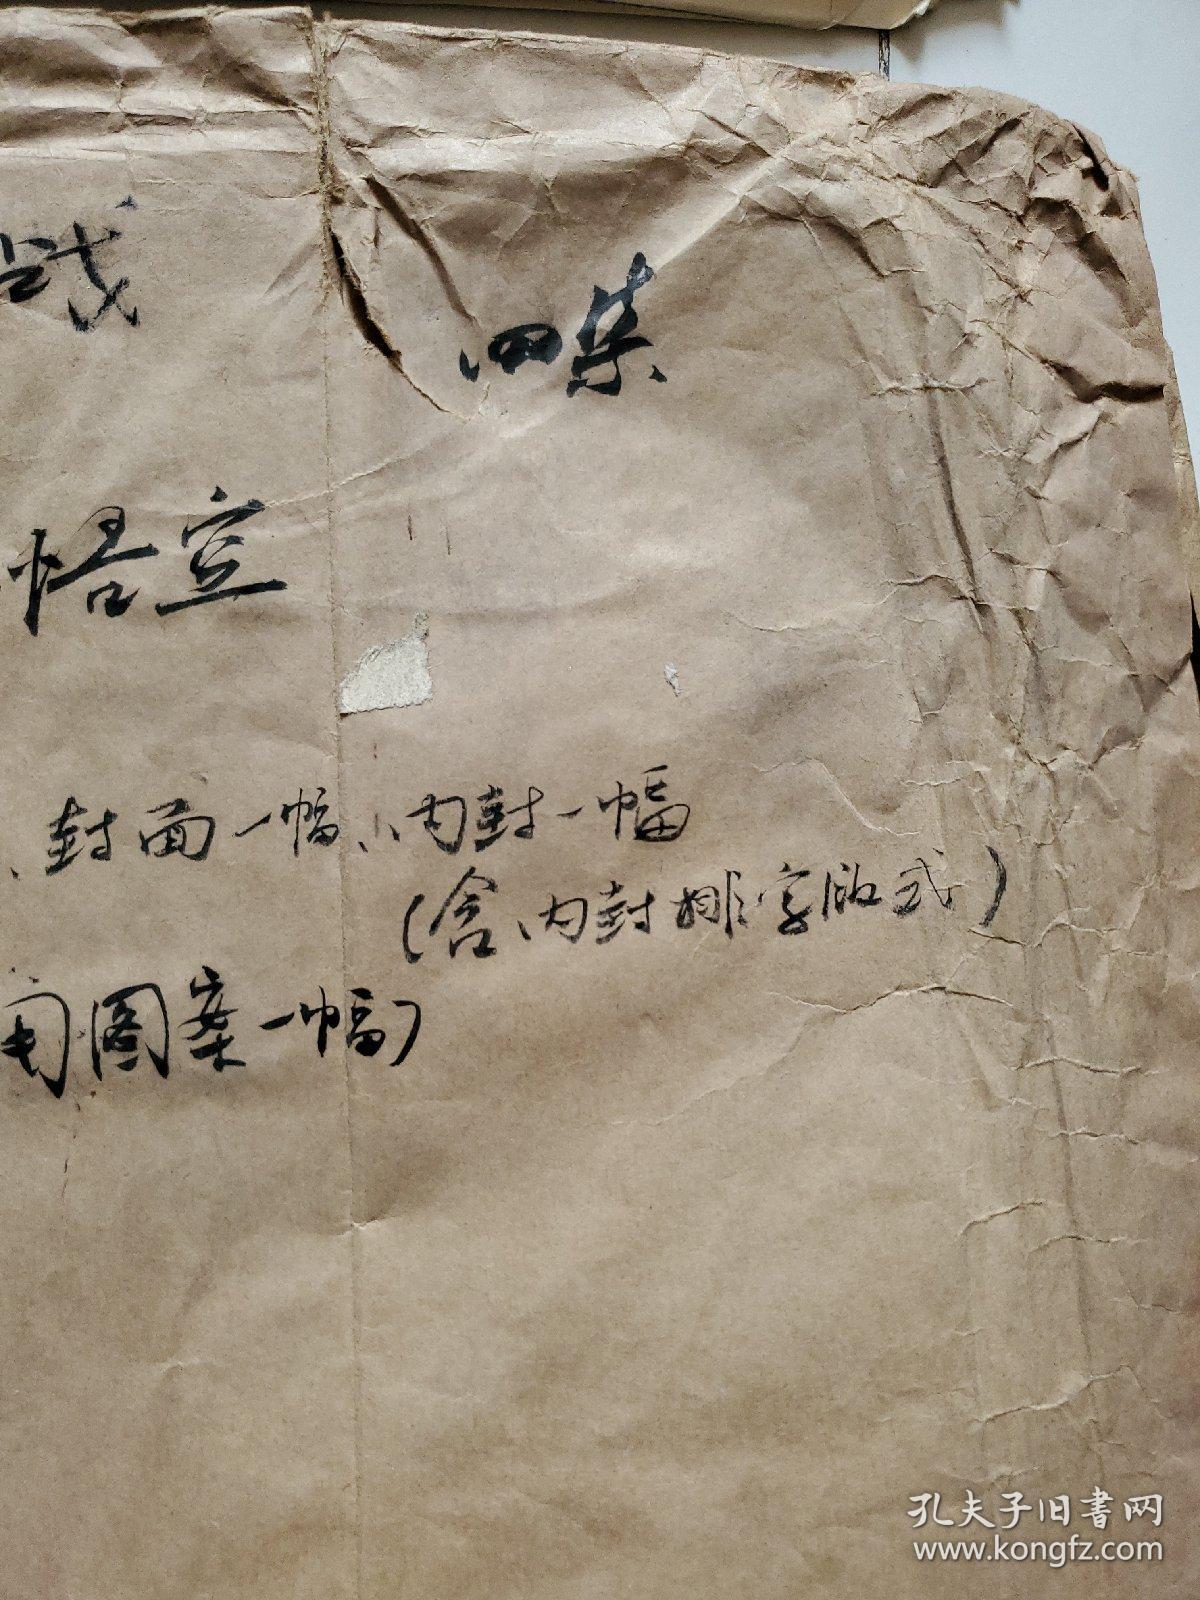 战 四集
悟空
、封面一幅、内封一幅
(含内封排字版式)
用图案一幅)
孔夫子旧书网
www.kongfz.com